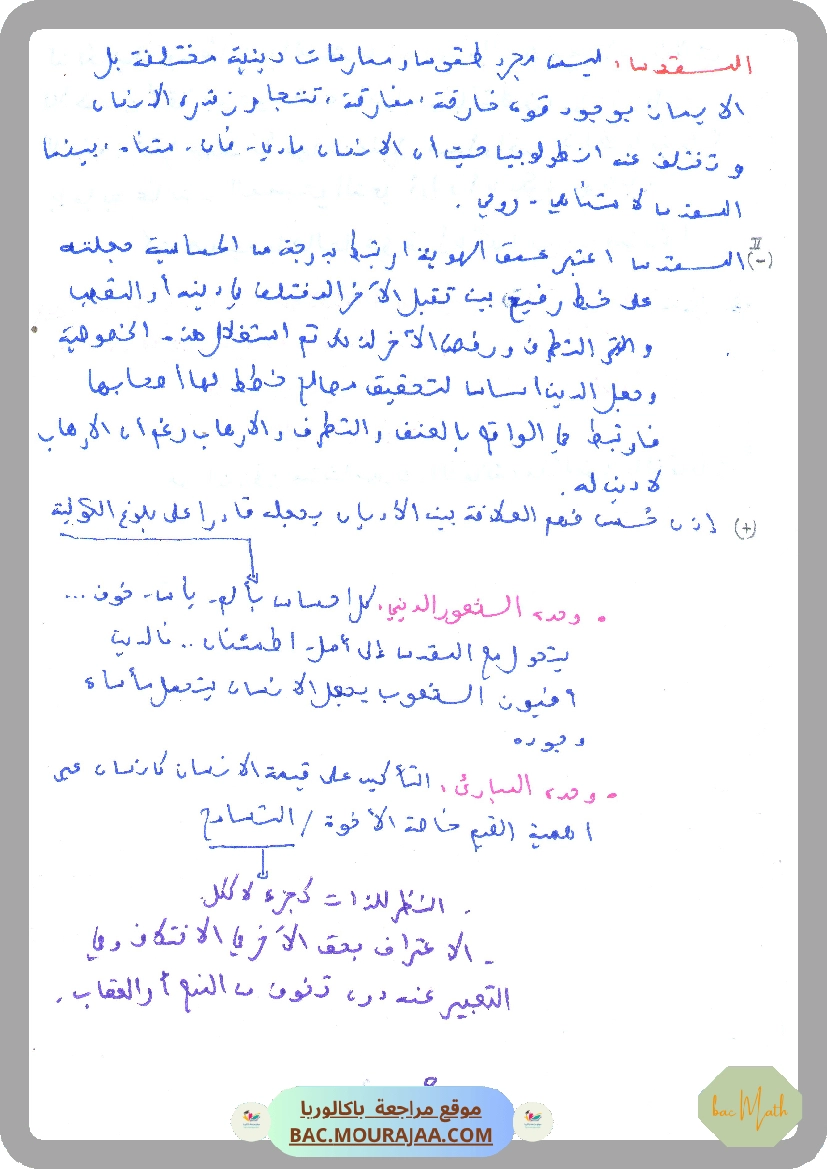 المقدس: ليس مجرد طقوس وممارسات دينية مختلفة بل
الإيمان بوجود قوة خارقة، مفارقة، تتجاوز قدرة الإنسان
وتختلف عنه انطولوجيا حيث أن الإنسان مادي - فان - متناه، بينما
المقدس لا متناهي - روحي.
II (-) المقدس اعتبر عمق الهوية ارتبط بدرجة من الحساسية جعلته
على خط رفيع بين تقبل الآخر المختلف في دينه أو التعصب
والتطرف ورفض الآخر لذلك تم استغلال هذه الخصوصية
وجعل الدين أساسا لتحقيق مصالح خطط لها أصحابها
فارتبط في الواقع بالعنف والتطرف والإرهاب رغم أن الإرهاب
لا دين له.
(+) إذن حُسن فهم العلاقة بين الأديان يجعله قادرا على بلوغ الكونية
• وحدة الشعور الديني: كل إحساس بألم - يأس - خوف ...
يتحول مع المقدس إلى أمل - اطمئنان .. فالدين
أفيون الشعوب يجعل الإنسان يتحمل مأساة
وجوده
• وحدة المبادئ: التأكيد على قيمة الإنسان كإنسان عبر
أهمية القيم خاصة الأخوة / التسامح
- النظر للذات كجزء لا ككل
- الاعتراف بحق الآخر في الاختلاف وفي
التعبير عنه دون تخوف من المنع أو العقاب.
8
موقع مراجعة باكالوريا
BAC.MOURAJAA.COM
bac Math